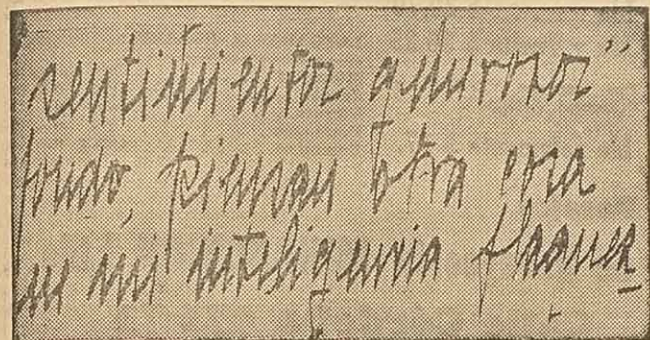 sentimientos generosos"
fondo, piensan otra cosa
mi inteligencia flaquea